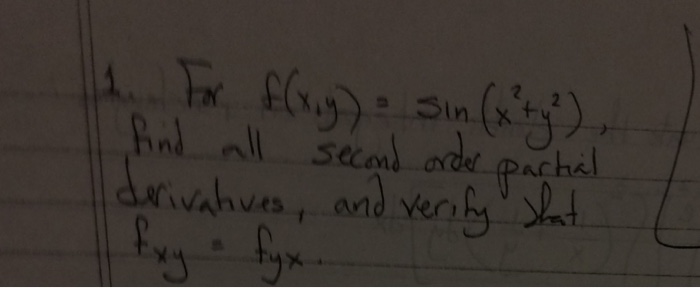 1. For f(x,y) = sin(x²+y²),
find all second order partial
derivatives, and verify that
fxy = fyx.